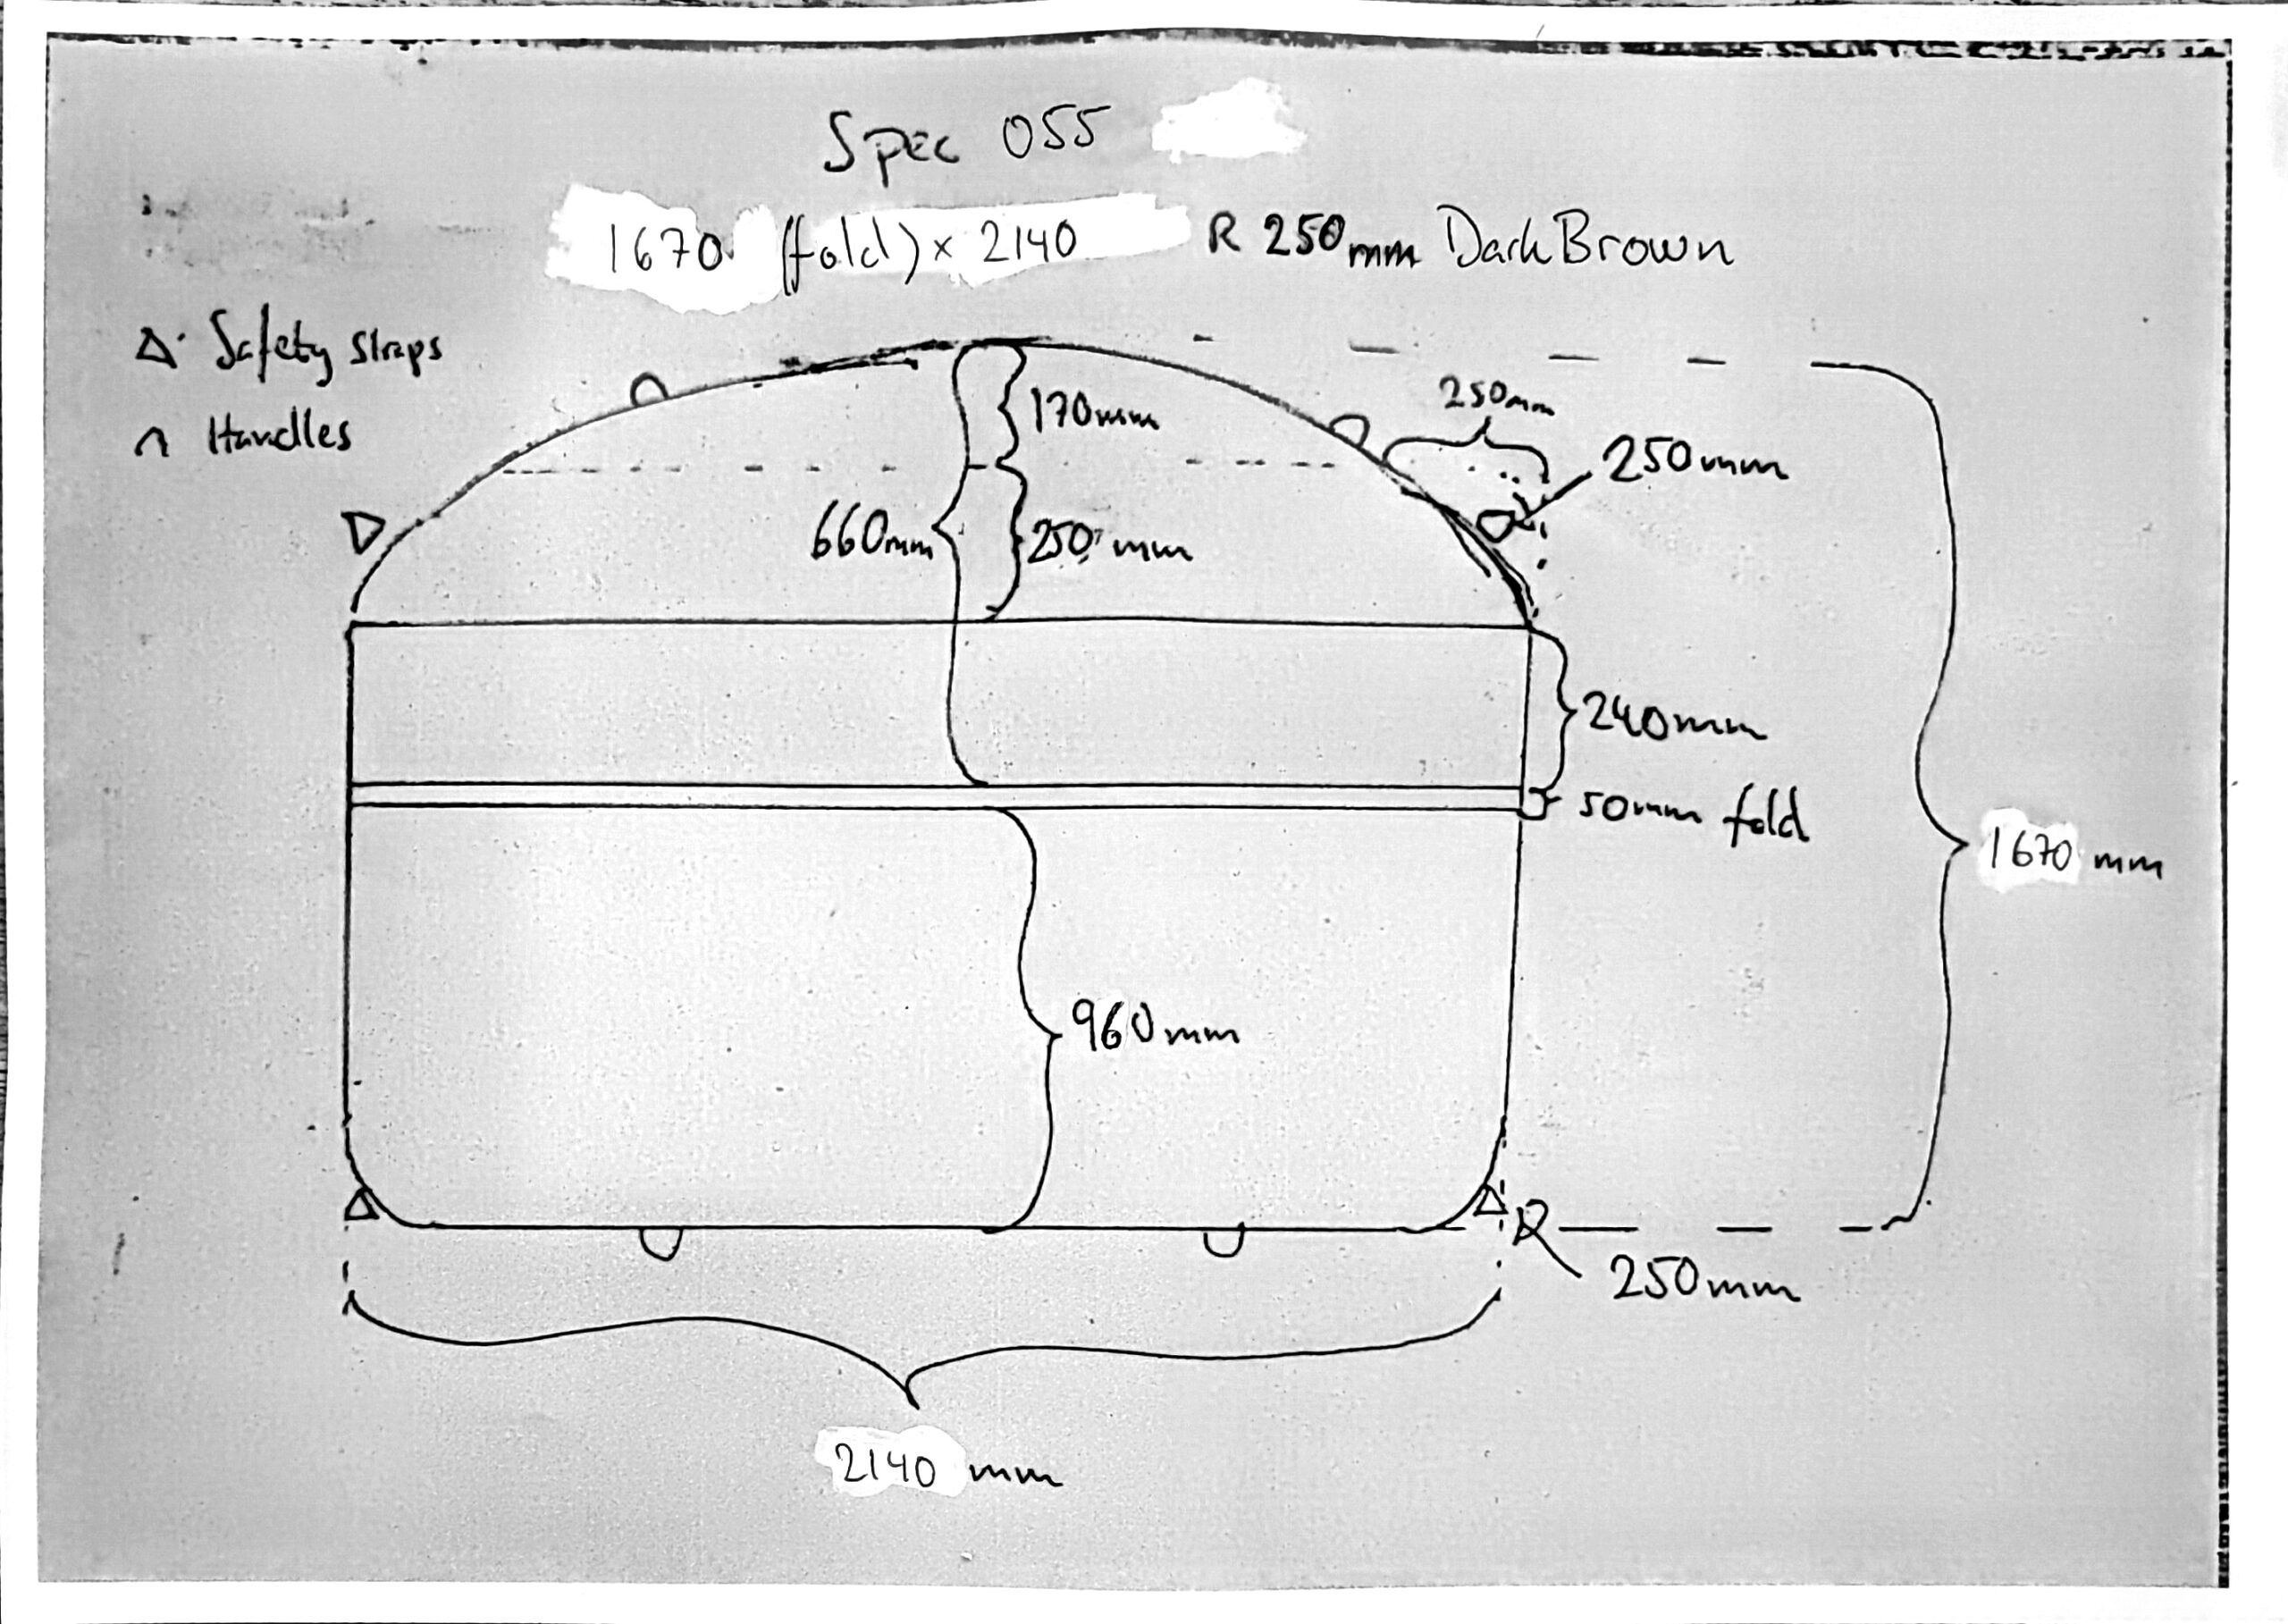 Spec 055
1670 (fold) x 2140 R 250mm Dark Brown
Δ Safety straps
∩ Handles
170mm
250mm
250mm
660mm
250 mm
240mm
50mm fold
1670 mm
960mm
R
250mm
2140 mm